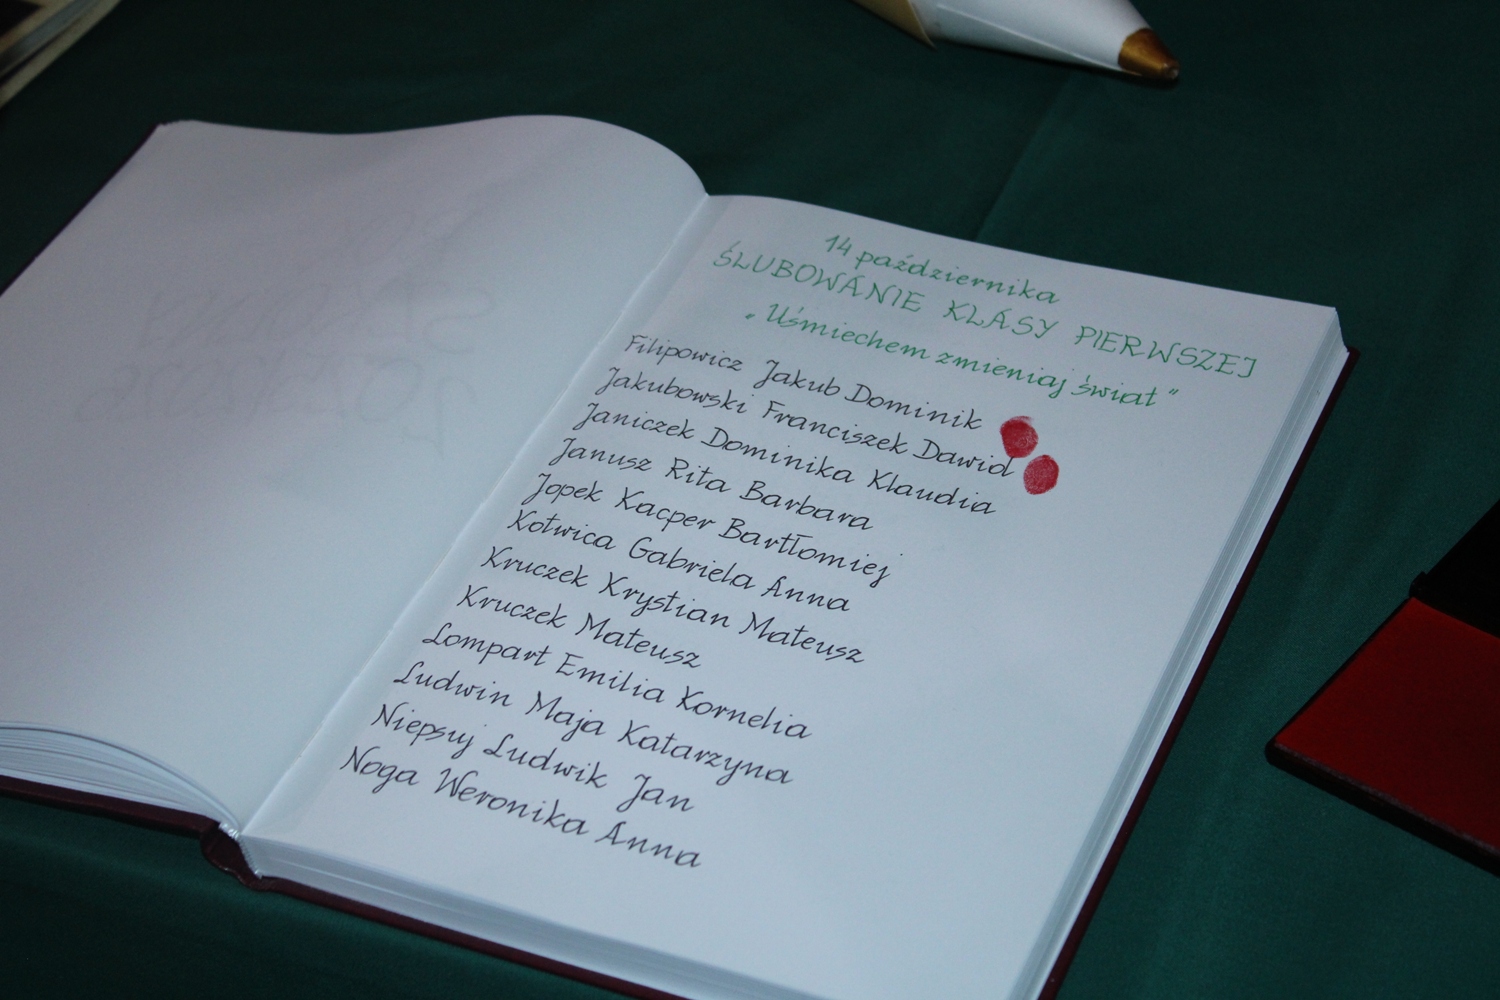 14 października
ŚLUBOWANIE KLASY PIERWSZEJ
„Uśmiechem zmieniaj świat"
Filipowicz Jakub Dominik
Jakubowski Franciszek Dawid
Janiczek Dominika Klaudia
Janusz Rita Barbara
Jopek Kacper Bartłomiej
Kotwica Gabriela Anna
Kruczek Krystian Mateusz
Kruczek Mateusz
Lompart Emilia Kornelia
Ludwin Maja Katarzyna
Niepsuj Ludwik Jan
Noga Weronika Anna